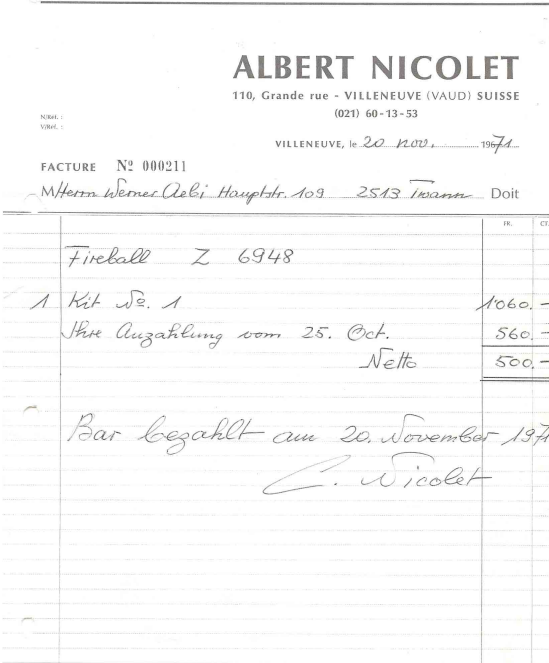 ALBERT NICOLET
110, Grande rue - VILLENEUVE (VAUD) SUISSE
(021) 60-13-53
N/Réf. :
V/Réf. :
VILLENEUVE, le 20 nov. 1971
FACTURE Nº 000211
M/Herrn Werner Aebi Hauptstr. 109 2513 Twann Doit
FR. CT.
Fireball Z 6948
1 Kit No. 1 1'060.-
Ihre Anzahlung vom 25. Oct. 560.-
Netto 500.-
Bar bezahlt am 20. November 1971
C. Nicolet